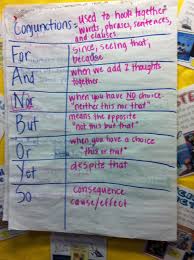 Conjunctions = used to hook together
words, phrases, sentences,
and clauses.
For since, seeing that,
because
And when we add 2 thoughts
together.
Nor when you have NO choice
"neither this nor that"
But means the opposite
"not this but that"
Or when you have a choice
"this or that"
Yet despite that
So consequence
cause/effect